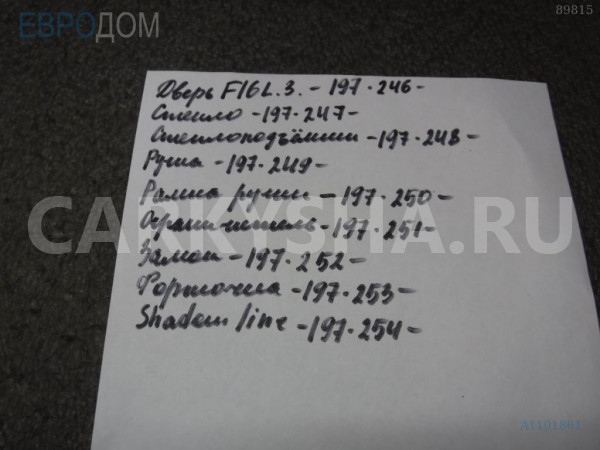 ЕВРОДОМ
89815
Дверь F16 L.З. - 197.246-
Стекло - 197.247-
Стеклоподъёмник - 197.248-
Ручка - 197.249-
Рамка ручки - 197.250-
Ограничитель - 197.251-
CARKYSHA.RU
Замок - 197.252-
Форточка - 197.253-
Shadow line - 197.254-
A1101861